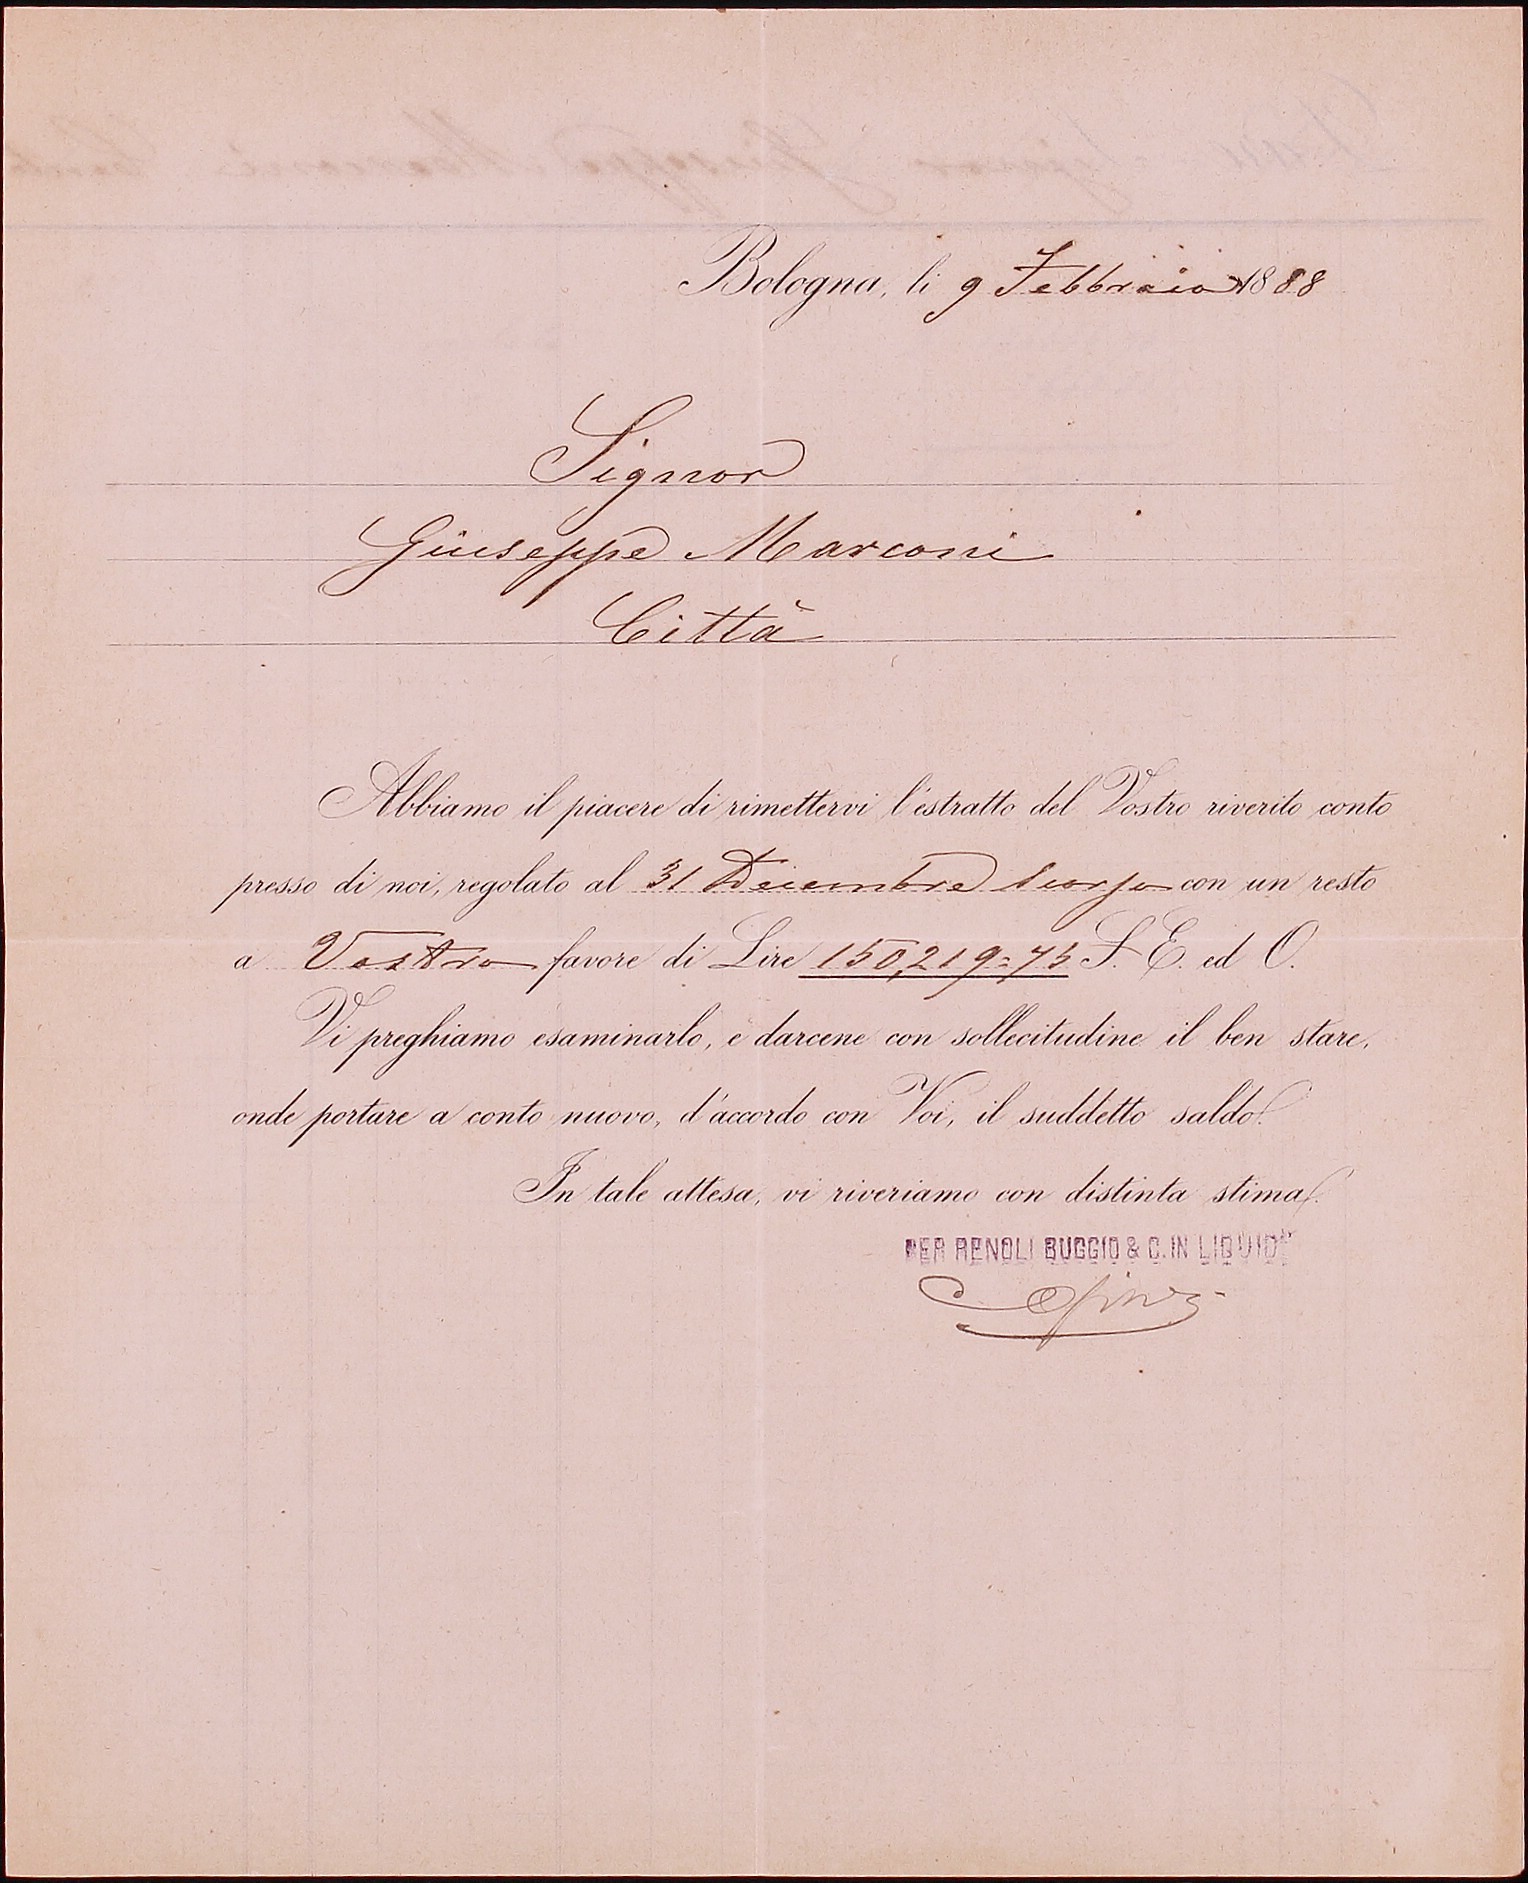 Bologna, li 9 Febbraio 1888
Signor
Giuseppe Marconi
Città
Abbiamo il piacere di rimettervi l'estratto del Vostro riverito conto
presso di noi, regolato al 31 Dicembre scorso con un resto
a Vostro favore di Lire 150,219=75 S. E. ed O.
Vi preghiamo esaminarlo, e darcene con sollecitudine il ben stare,
onde portare a conto nuovo, d'accordo con Voi, il suddetto saldo.
In tale attesa, vi riveriamo con distinta stima.
PER RENOLI BUGGIO & C. IN LIQUIDE